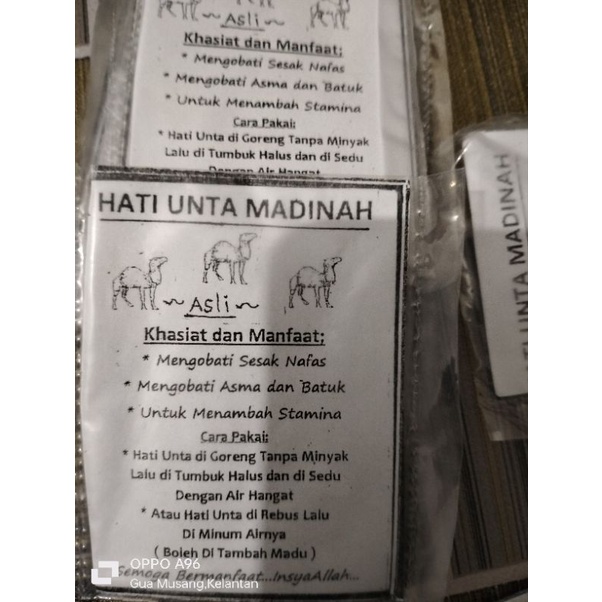 ~ Asli ~
Khasiat dan Manfaat:
* Mengobati Sesak Nafas
* Mengobati Asma dan Batuk
* Untuk Menambah Stamina
Cara Pakai:
* Hati Unta di Goreng Tanpa Minyak
Lalu di Tumbuk Halus dan di Sedu
Dengan Air Hangat
HATI UNTA MADINAH
~ Asli ~
Khasiat dan Manfaat:
* Mengobati Sesak Nafas
* Mengobati Asma dan Batuk
* Untuk Menambah Stamina
Cara Pakai:
* Hati Unta di Goreng Tanpa Minyak
Lalu di Tumbuk Halus dan di Sedu
Dengan Air Hangat
* Atau Hati Unta di Rebus Lalu
Di Minum Airnya
( Boleh Di Tambah Madu )
Semoga Bermanfaat...InsyaAllah...
UNTA MADINAH
OPPO A96
Gua Musang,Kelantan